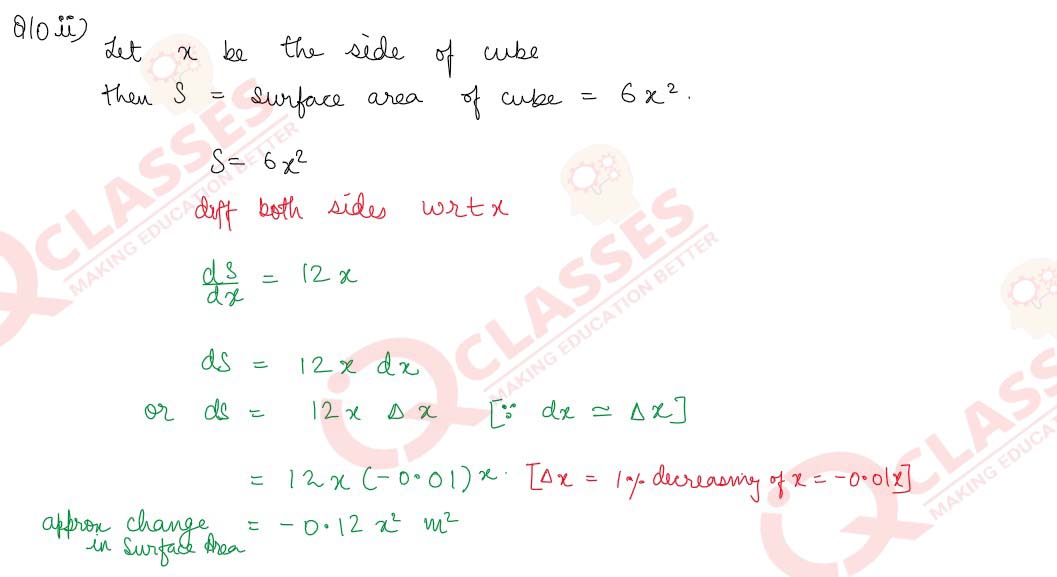 Q10 ii)
Let x be the side of cube
then S = Surface area of cube = 6x².
S = 6x²
diff both sides wrt x
dS/dx = 12x
dS = 12x dx
or dS = 12x Δx [∵ dx ≃ Δx]
= 12x (-0.01)x. [Δx = 1% decreasing of x = -0.01x]
approx change in Surface Area = -0.12 x² m²
CLASSES
MAKING EDUCATION BETTER
CLASSES
MAKING EDUCATION BETTER
CLASSES
MAKING EDUCATION